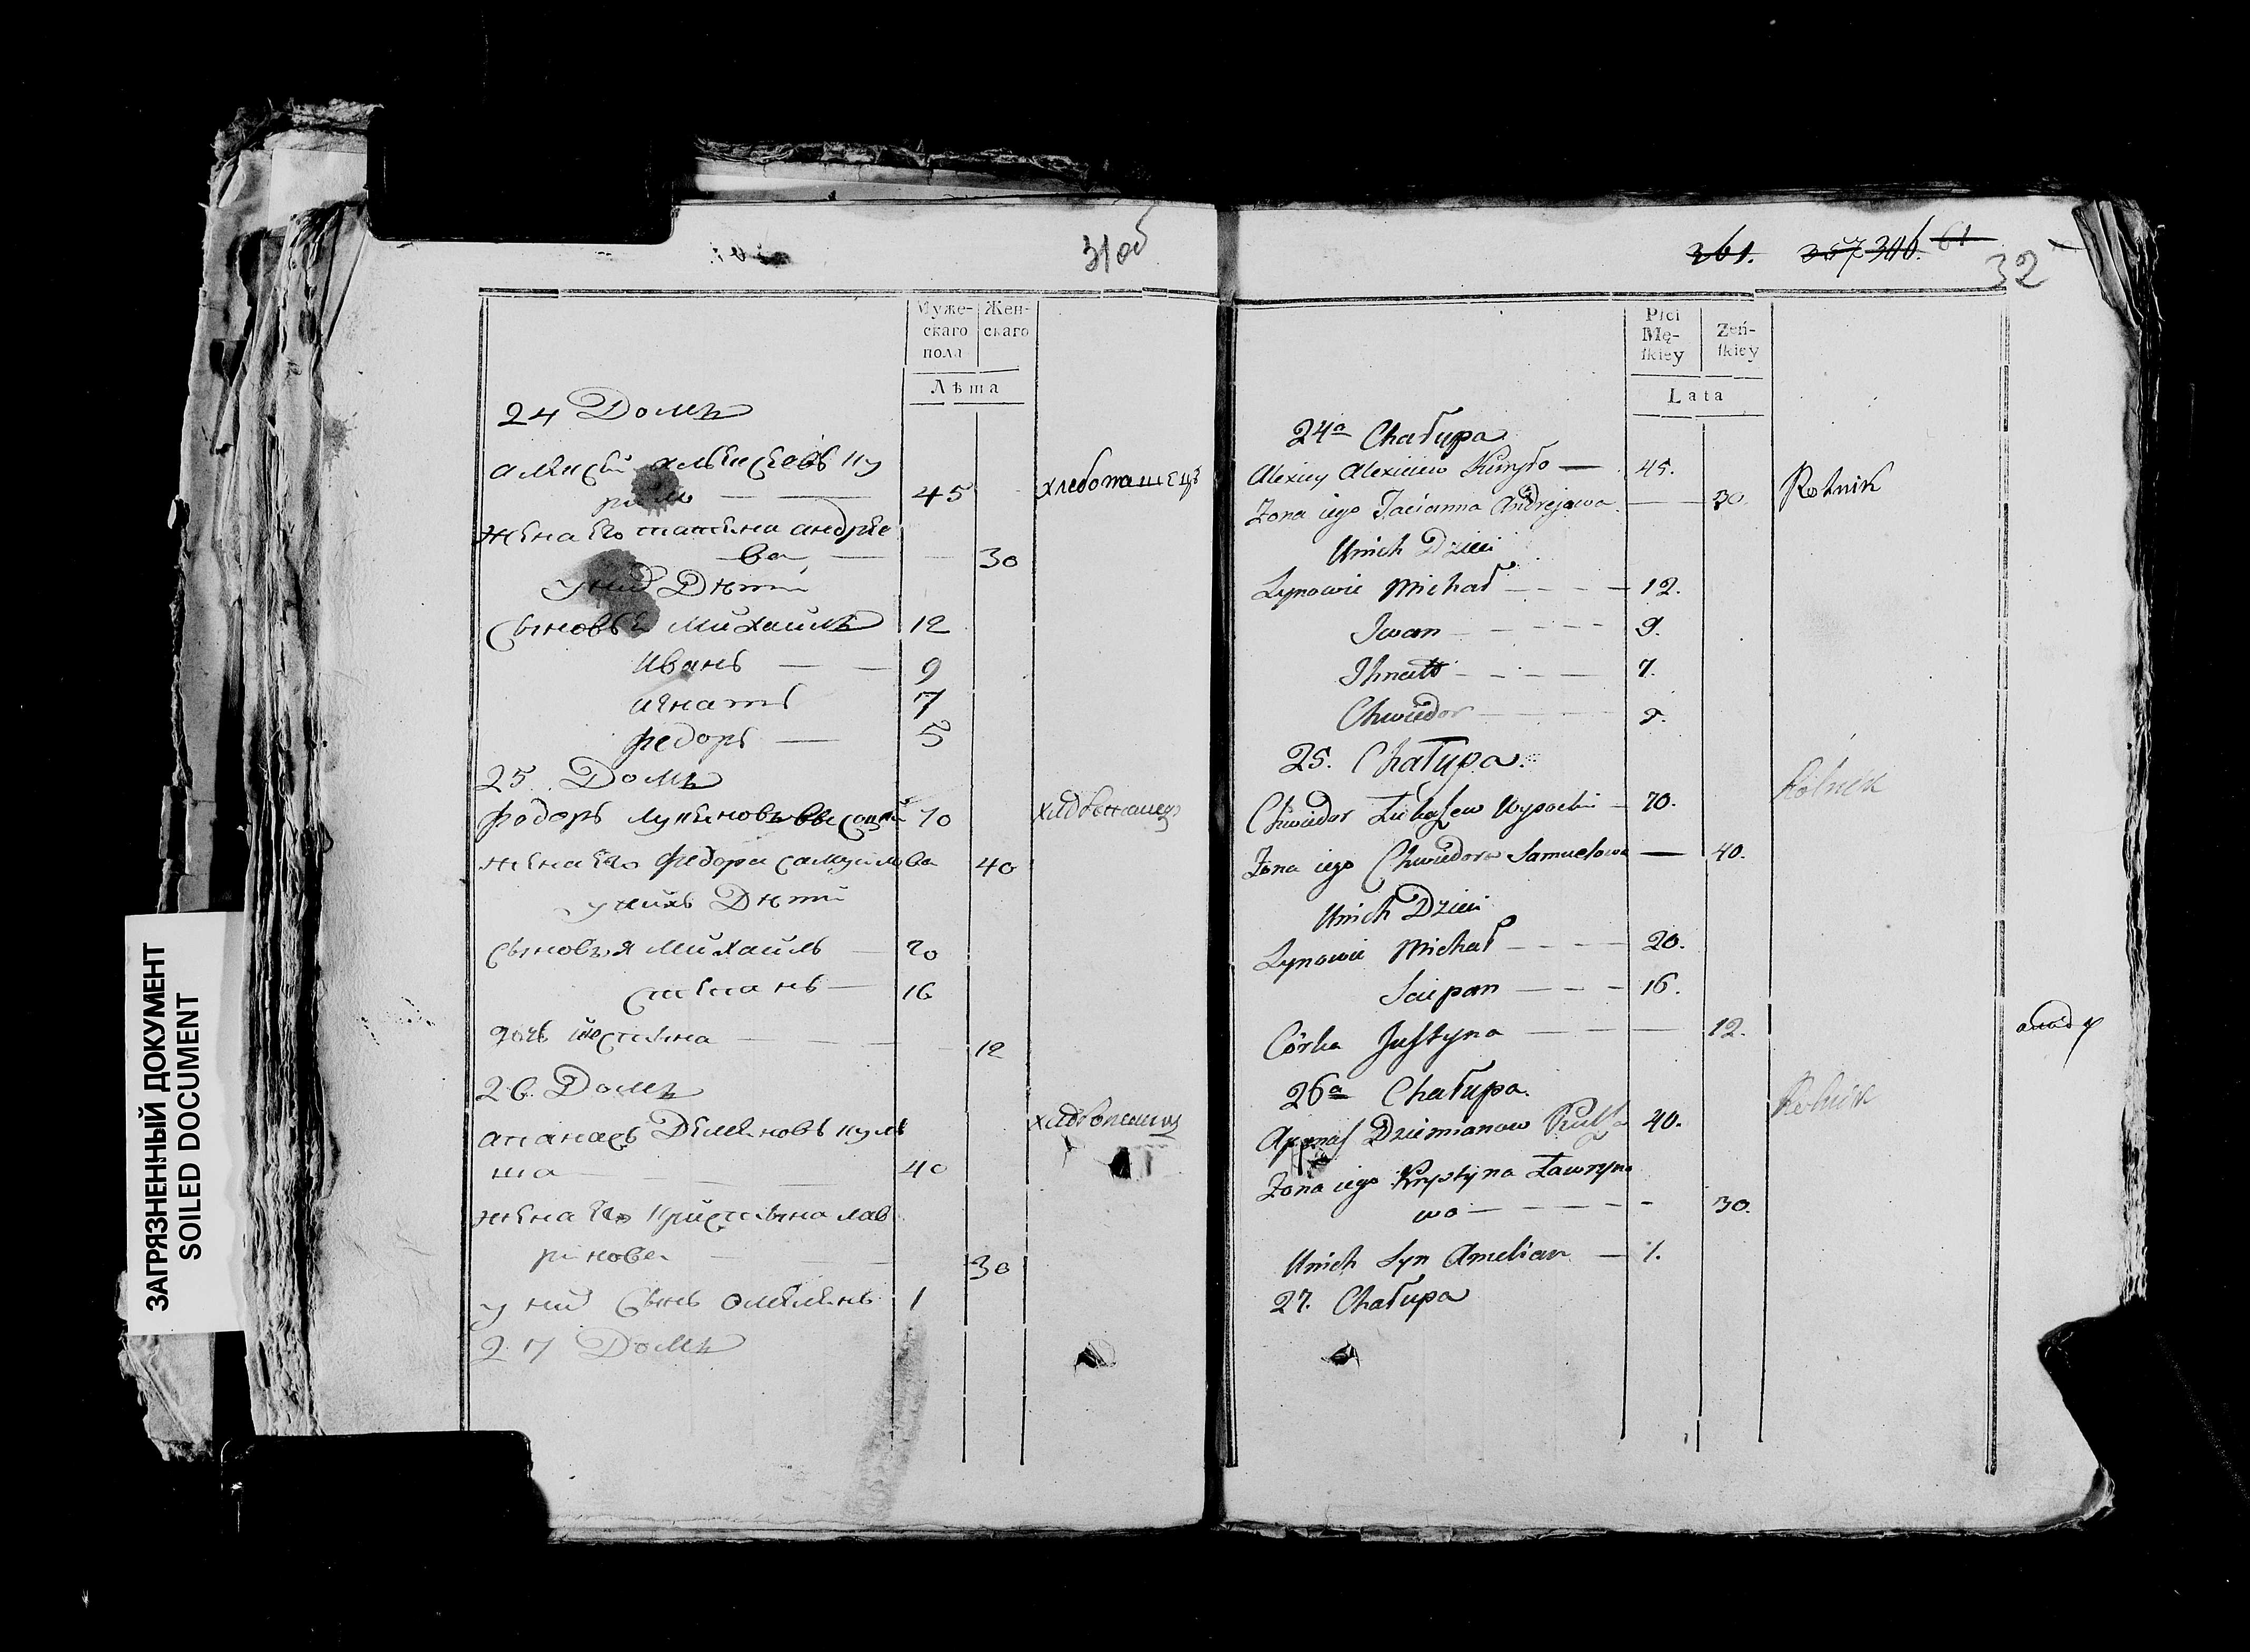 31об
Муже-
скаго
пола
Жен-
скаго
Лѣта
24 Домъ
алексей алексеевъ ку
рило 45 хлебопашецъ
жена Его татьяна андрее
ва 30
у них Дѣти
Сыновья Михаилъ 12
Иванъ 9
игнатъ 7
федоръ 5
25 Домъ
федоръ лукиновъ высоцкий 70 хлебопашецъ
жена Его федора самуилова 40
у нихъ Дѣти
Сыновья Михаилъ 20
степанъ 16
дочь юстына 12
26 Домъ
апанасъ Демяновъ куль хлебопашец
ша 40
жена Его кристына лав
ринова 30
у них Сынъ омелянъ 1
27 Домъ
ЗАГРЯЗНЕННЫЙ ДОКУМЕНТ
SOILED DOCUMENT
361. 357 346. 61
32
Płci
Mę-
ſkiey
Zeń-
ſkiey
Lata
24a Chałupa
Alexiey Alexieiew Kuryło — 45.
Zona iego Tacianna Andrejowa — 30. Rolnik
Unich Dzieci
Synowie Michał - - - 12.
Iwan - - - 9.
Ihnatt - - - 7.
Chwiedor
25. Chałupa.
Chwiedor Łukaſzew Wysocki - 70. Rolnik
Zona iego Chwiedora Samuełowa — 40.
Unich Dzieci
Synowie Michał - - - 20.
Sciepan - - - 16.
Córka Juſtyna — 12.
26a Chałupa.
Apanaſ Dziemianow 40. Rolnik
Zona iego Krystyna Ławryno
wa - - - 30.
Unich Syn Amelian — 1.
27. Chałupa